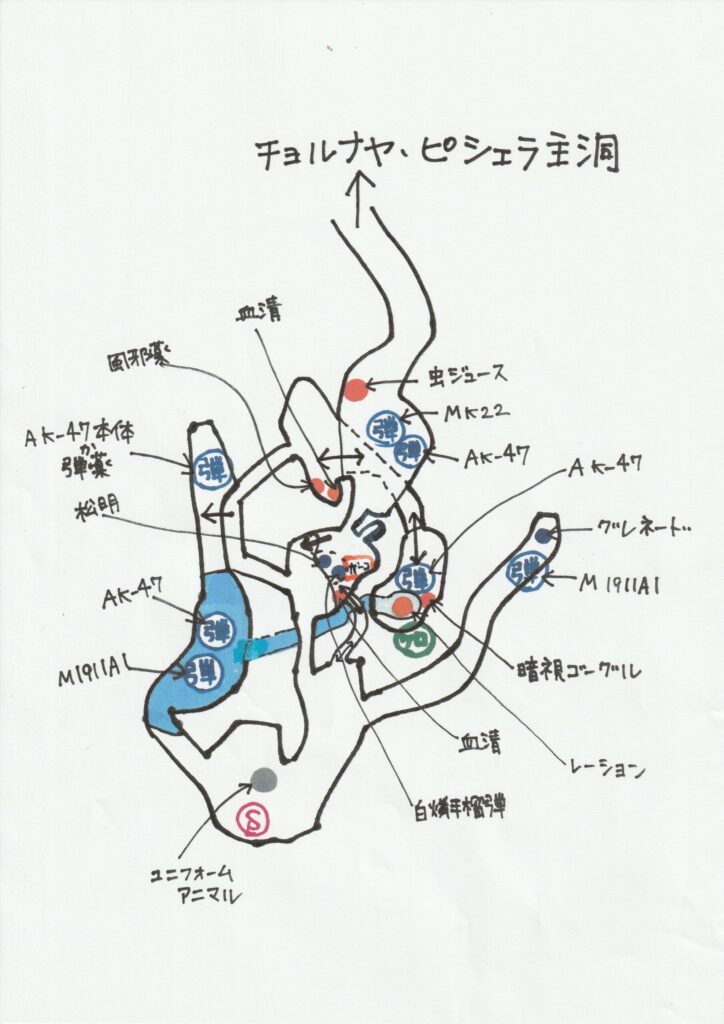 チョルナヤ・ピシェラ主洞
血清
風邪薬
虫ジュース
MK22
弾
AK-47
弾
AK-47本体
か
弾薬
弾
松明
AK-47
グレネード
M1911A1
弾
弾
AK-47
弾
M1911A1
弾
ケロ
暗視ゴーグル
血清
レーション
白燐手榴弾
S
ユニフォーム
アニマル